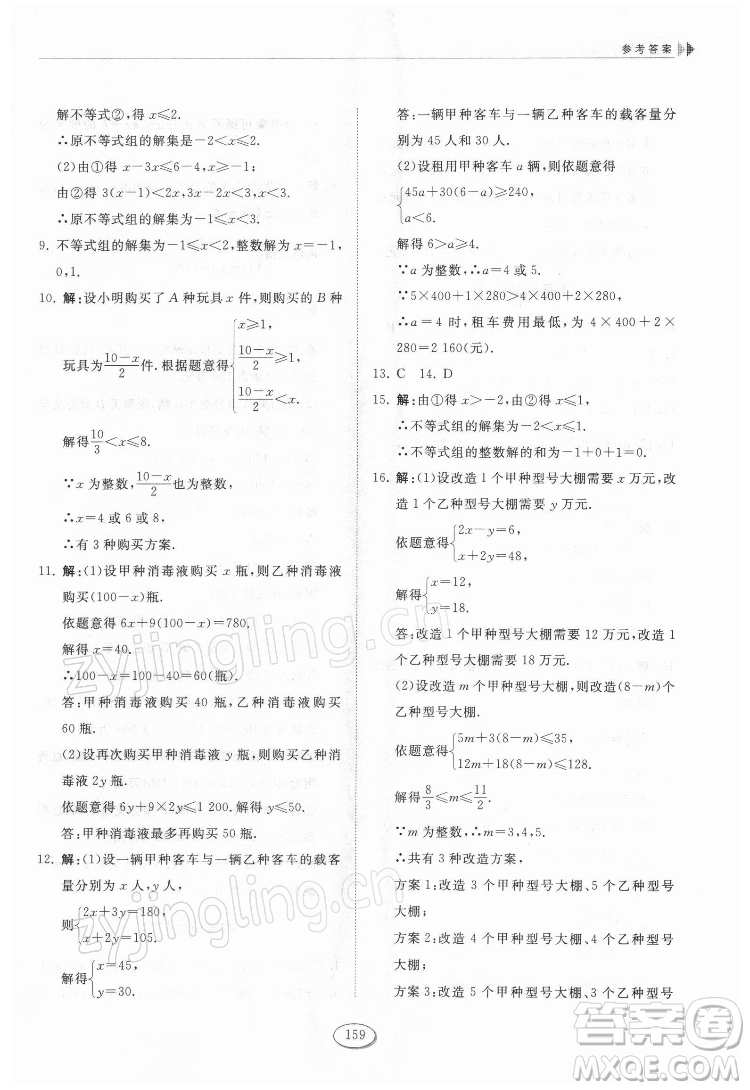 参考答案
解不等式②,得 x≤2.
∴原不等式组的解集是-2<x≤2.
(2)由①得 x-3x≤6-4,x≥-1;
由②得 3(x-1)<2x,3x-2x<3,x<3.
∴原不等式组的解集是-1≤x<3.
9. 不等式组的解集为-1≤x<2,整数解为 x=-1,
0,1.
10. 解:设小明购买了 A 种玩具 x 件,则购买的 B 种
玩具为(10-x)/2件.根据题意得{x≥1, (10-x)/2≥1, (10-x)/2<x.
解得10/3<x≤8.
∵x 为整数,(10-x)/2也为整数,
∴x=4 或 6 或 8,
∴有 3 种购买方案.
11. 解:(1)设甲种消毒液购买 x 瓶,则乙种消毒液
购买(100-x)瓶.
依题意得 6x+9(100-x)=780.
解得 x=40.
∴100-x=100-40=60(瓶).
答:甲种消毒液购买 40 瓶,乙种消毒液购买
60 瓶.
(2)设再次购买甲种消毒液 y 瓶,则购买乙种消
毒液 2y 瓶.
依题意得 6y+9×2y≤1 200. 解得 y≤50.
答:甲种消毒液最多再购买 50 瓶.
12. 解:(1)设一辆甲种客车与一辆乙种客车的载客
量分别为 x 人,y 人,
则{2x+3y=180, x+2y=105.
解得{x=45, y=30.
答:一辆甲种客车与一辆乙种客车的载客量分
别为 45 人和 30 人.
(2)设租用甲种客车 a 辆,则依题意得
{45a+30(6-a)≥240, a<6.
解得 6>a≥4.
∵a 为整数,∴a=4 或 5.
∵5×400+1×280>4×400+2×280,
∴a=4 时,租车费用最低,为 4×400+2×
280=2 160(元).
13. C 14. D
15. 解:由①得 x>-2,由②得 x≤1,
∴不等式组的解集为-2<x≤1,
∴不等式组的整数解的和为-1+0+1=0.
16. 解:(1)设改造 1 个甲种型号大棚需要 x 万元,改
造 1 个乙种型号大棚需要 y 万元.
依题意得{2x-y=6, x+2y=48,
解得{x=12, y=18.
答:改造 1 个甲种型号大棚需要 12 万元,改造 1
个乙种型号大棚需要 18 万元.
(2)设改造 m 个甲种型号大棚,则改造(8-m)个
乙种型号大棚.
依题意得{5m+3(8-m)≤35, 12m+18(8-m)≤128.
解得8/3≤m≤11/2.
∵m 为整数,∴m=3,4,5.
∴共有 3 种改造方案,
方案 1:改造 3 个甲种型号大棚、5 个乙种型号大
棚;
方案 2:改造 4 个甲种型号大棚、4 个乙种型号大
棚;
方案 3:改造 5 个甲种型号大棚、3 个乙种型号
159
zyjingling.cn
zyjingling.cn
答案圈
MXQE.COM